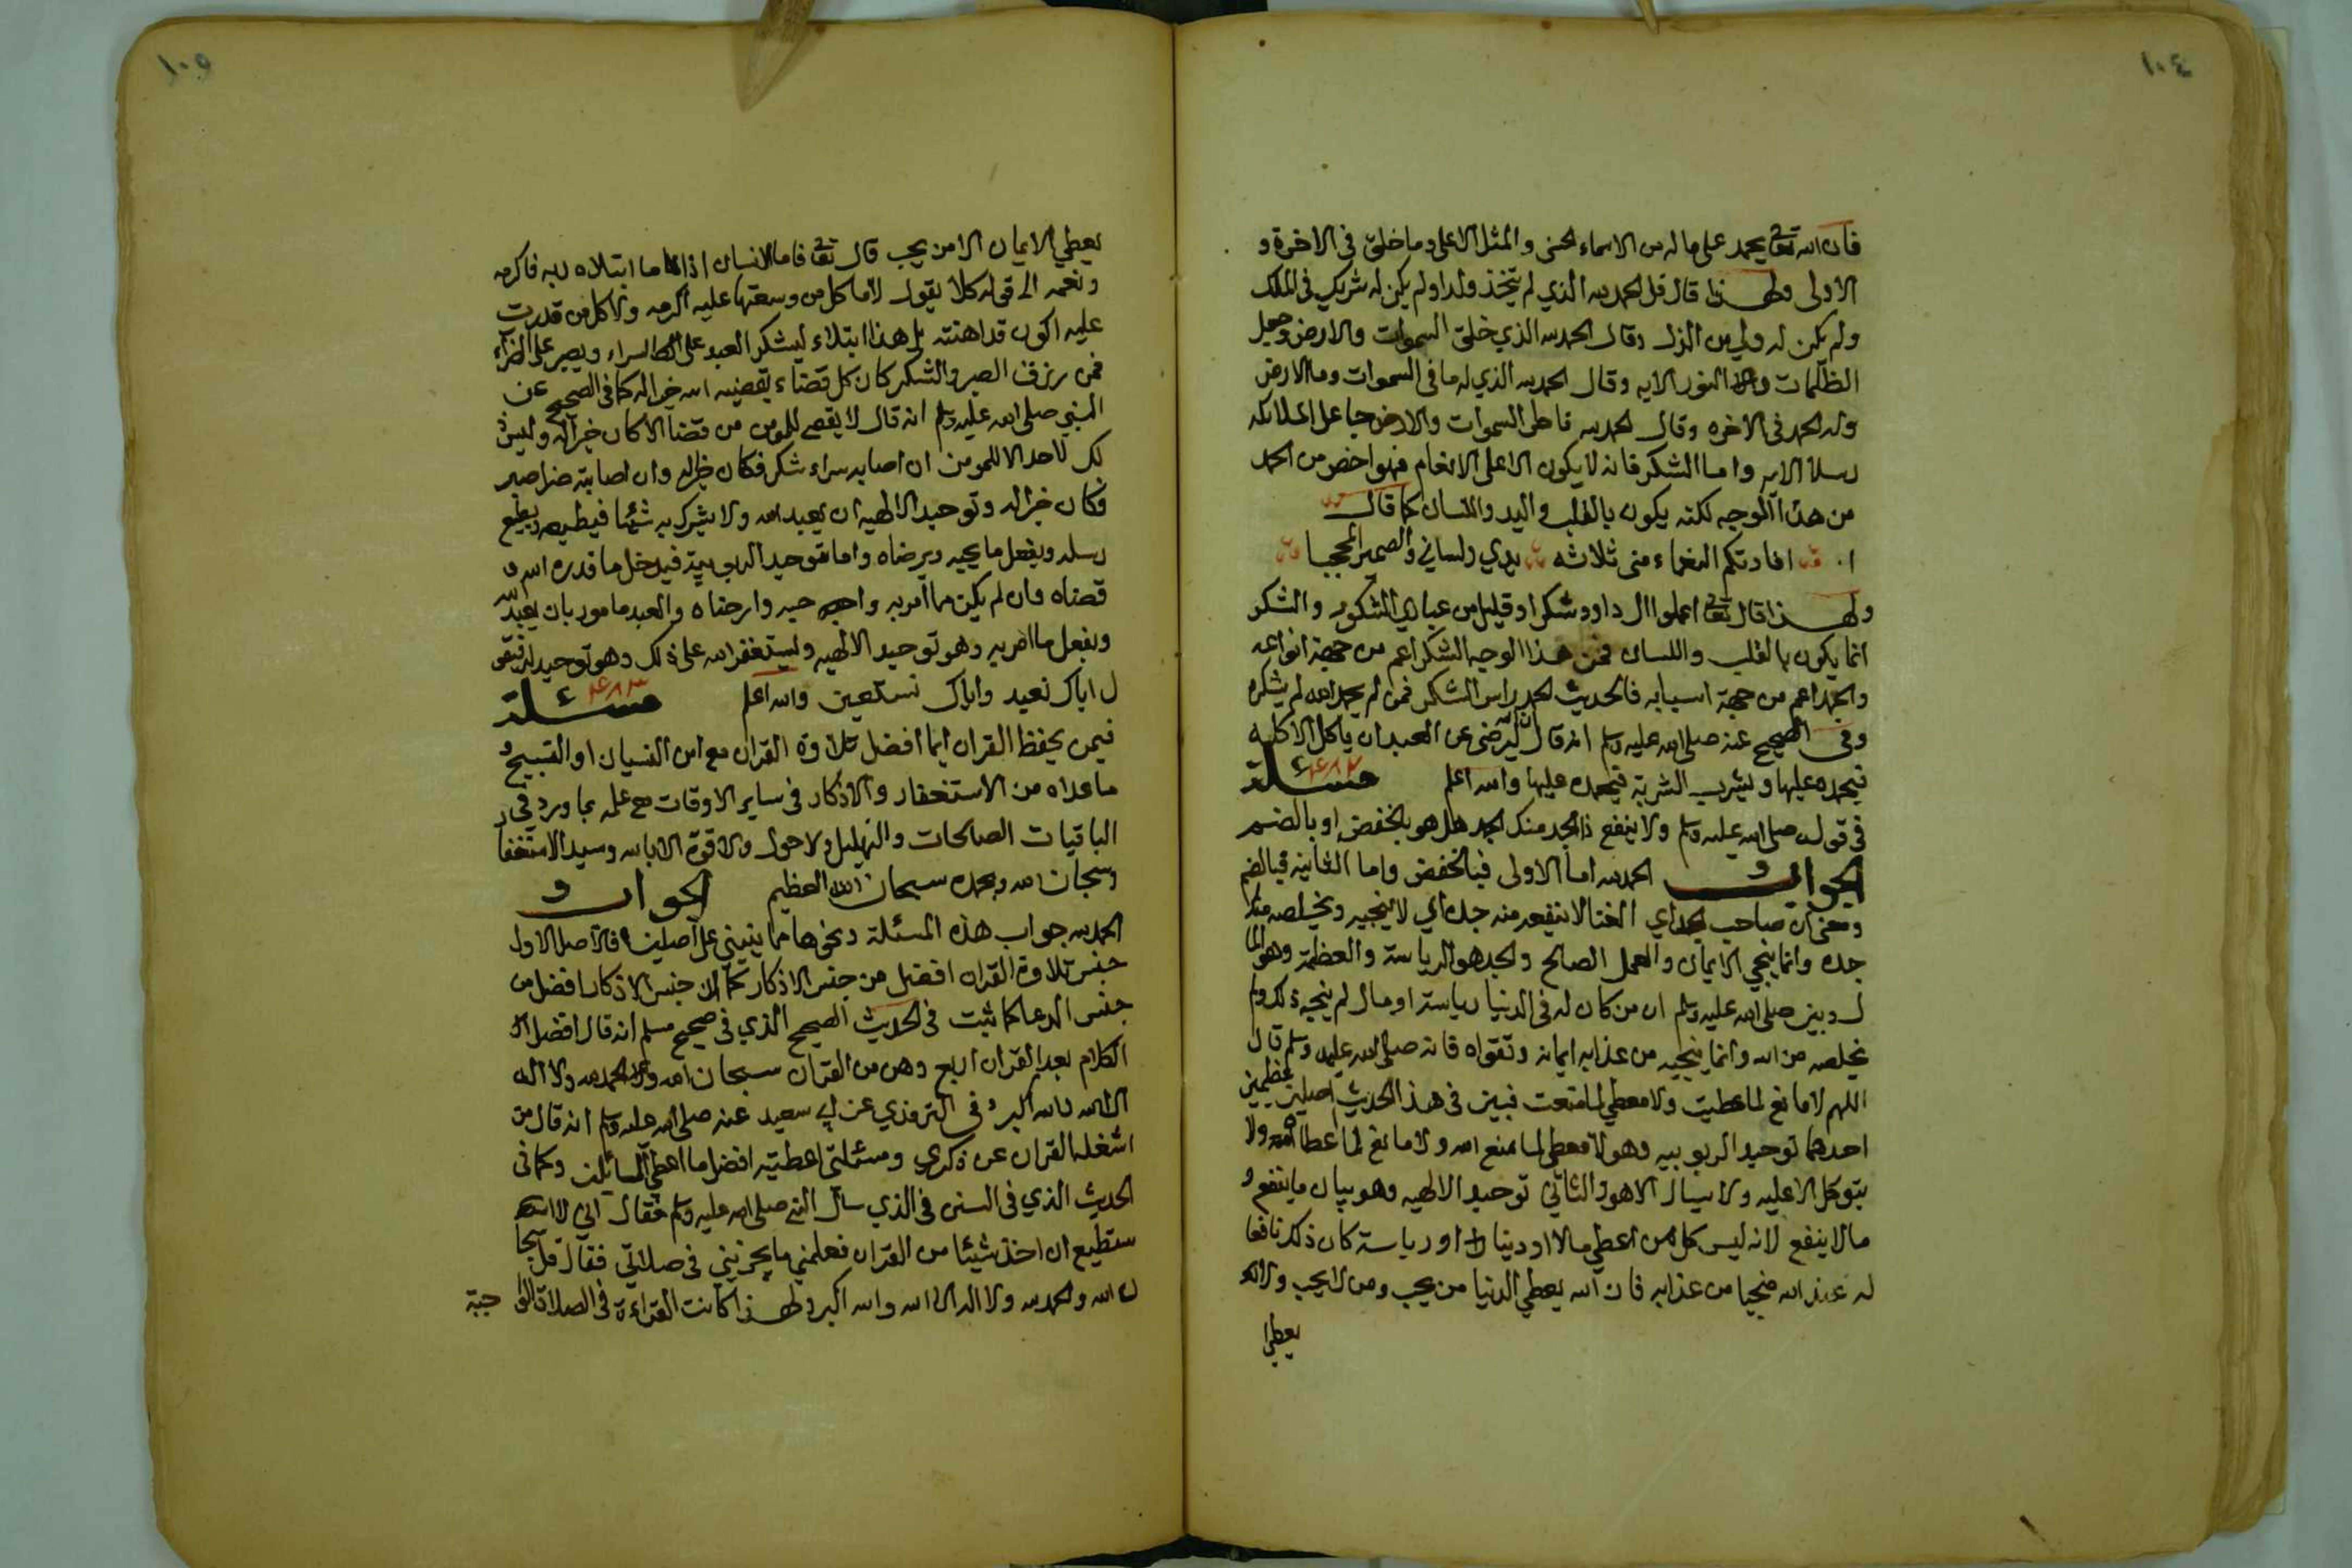 ١٠٤
فان الله تعا يحمد على ماله من الاسماء الحسنى والمثل الاعلى وما خلق فى الاخرة و
الاولى ولهذا قال قل الحمد لله الذي لم يتخذ ولدا ولم يكن له شريك فى الملك
ولم يكن له ولي من الذل وقال الحمد لله الذي خلق السموات والارض وجعل
الظلمات والنور الايه وقال الحمد لله الذي له ما فى السموات وما الارض
وله الحمد فى الاخره وقال الحمد لله فاطر السموات والارض جاعل الملائكه
رسلا الايه واما الشكر فانه لا يكون الا على الانعام فهو اخص من الحمد
من هذا الوجه لكنه يكون بالقلب واليد واللسان كما قال
افادتكم النعماء منى ثلاثه يدي ولساني والضمير المحجبا
ولهذا قال تعا اعملوا ال داود شكرا وقليل من عبادي الشكور والشكر
انما يكون بالقلب واللسان فمن هذا الوجه الشكر اعم من جهة انواعه
والحمد اعم من جهة اسبابه فالحديث الحمد راس الشكر فمن لم يحمد الله لم يشكره
وفى الصحيح عنه صلى الله عليه وسلم انه قال ان الله ليرضى عن العبد ان ياكل الاكله
فيحمده عليها ويشرب الشربة فيحمده عليها والله اعلم مسئلة ٤٨٢
فى قوله صلى الله عليه وسلم ولا ينفع ذا الجد منك الجد هل هو بالخفض او بالضم
الجواب الحمد لله اما الاولى فبالخفض واما الثانيه فبالضم
ومعنى ان صاحب الجد اي الغنا لا ينفعه منه جده اي لا ينجيه ويخلصه منك
جده وانما ينجي الايمان والعمل الصالح والجد هو الرياسة والعظمة وهو الما
ل وبين صلى الله عليه وسلم ان من كان له فى الدنيا رياسة او مال لم ينجيه ذلك ولم
يخلصه من الله وانما ينجيه من عذابه ايمانه وتقواه فانه صلى الله عليه وسلم قال
اللهم لا مانع لما اعطيت ولا معطي لما منعت فبين فى هذا الحديث اصلين عظيمين
احدهما توحيد الربوبيه وهو لا معطي لما منع الله ولا مانع لما اعطاه ولا
يتوكل الا عليه ولا يسال الا هو والثاني توحيد الالهيه وهو بيان ما ينفع و
ما لا ينفع لانه ليس كل من اعطي مالا او دنيا او رياسة كان ذلك نافعا
له عند الله منجيا من عذابه فان الله يعطي الدنيا من يحب ومن لا يحب ولا
يعطي
١٠٥
يعطي الايمان الا من يحب قال تعا فاما الانسان اذا ما ابتلاه ربه فاكرمه
ونعمه الى قوله كلا يقول لا ما كل من وسعتها عليه اكرمه ولا كل من قدرت
عليه اكون قد اهنته بل هذا ابتلاء ليشكر العبد على السراء ويصبر على الضراء
فمن رزق الصبر والشكر كان كل قضاء يقضيه الله خيرا له كما فى الصحيح عن
النبي صلى الله عليه وسلم انه قال لا يقضي للمومن من قضا الا كان خيرا له وليس ذ
لك لاحد الا للمومن ان اصابه سراء شكر فكان خيرا له وان اصابته ضرا صبر
فكان خيرا له وتوحيد الالهيه ان يعبد الله ولا يشرك به شيئا فيطيعه ويطيع
رسله ويفعل ما يحبه ويرضاه واما توحيد الربوبية فيدخل ما قدره الله و
قضاه وان لم يكن مما امر به واحبه وارضاه والعبد مامور بان يعبد الله
ويفعل ما امر به وهو توحيد الالهيه ويستغفر الله على ذلك وهو توحيد له فيقو
ل اياك نعبد واياك نستعين والله اعلم مسئلة ٤٨٣
فيمن يحفظ القران ايما افضل تلاوة القران مع امن النسيان او التسبيح و
ما عداه من الاستغفار والاذكار فى ساير الاوقات مع علمه بما ورد فى
الباقيات الصالحات والتهليل ولا حول ولا قوة الا بالله وسيد الاستغفا
وسبحان الله وبحمده سبحان الله العظيم الجواب
الحمد لله جواب هذه المسئلة ونحوها مما ينبني على اصلين فالاصل الاول
جنس تلاوة القران افضل من جنس الاذكار كما ان جنس الاذكار افضل من
جنس الدعا كما ثبت فى الحديث الصحيح الذي فى صحيح مسلم انه قال افضل
الكلام بعد القران اربع وهن من القران سبحان الله والحمد لله ولا اله
الا الله والله اكبر وفى الترمذي عن ابي سعيد عنه صلى الله عليه وسلم انه قال من
اشغله القران عن ذكري ومسئلتي اعطيته افضل ما اعطي السائلين وكما فى
الحديث الذي فى السنن فى الذي سال النبي صلى الله عليه وسلم فقال اني لا
ستطيع ان اخذ شيئا من القران فعلمني ما يجزيني فى صلاتي فقال قل سبحا
ن الله والحمد لله ولا اله الا الله والله اكبر ولهذا كانت القراءة فى الصلاة الوا جبة